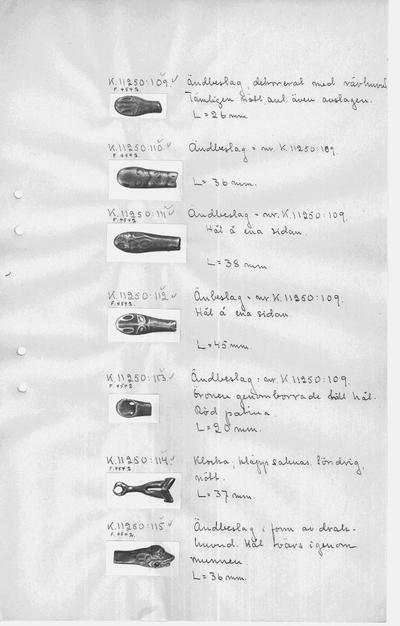 K.11250:109. Ändbeslag, dekorerat med rävhuvud
F.4542. Tämligen nött ant. även avslagen.
L=26 mm.
K.11250:110. Ändbeslag = nr. K.11250:109.
F.4542.
L=36 mm.
K.11250:111 Ändbeslag = nr. K.11250:109.
F.4542 Hål å ena sidan.
L=38 mm.
K.11250:112 Änbeslag = nr. K.11250:109.
F.4542. Hål å ena sidan.
L=45 mm.
K.11250:113. Ändbeslag = nr. K.11250:109.
F.4542 Öronen genomborrade hål.
Röd patina.
L=20 mm.
K.11250:114. Klocka, kläpp saknas.
F.4542 nött.
L=37 mm.
K.11250:115 Ändbeslag i form av drak-
F.4542. huvud. Hål tvärs igenom
munnen
L=36 mm.